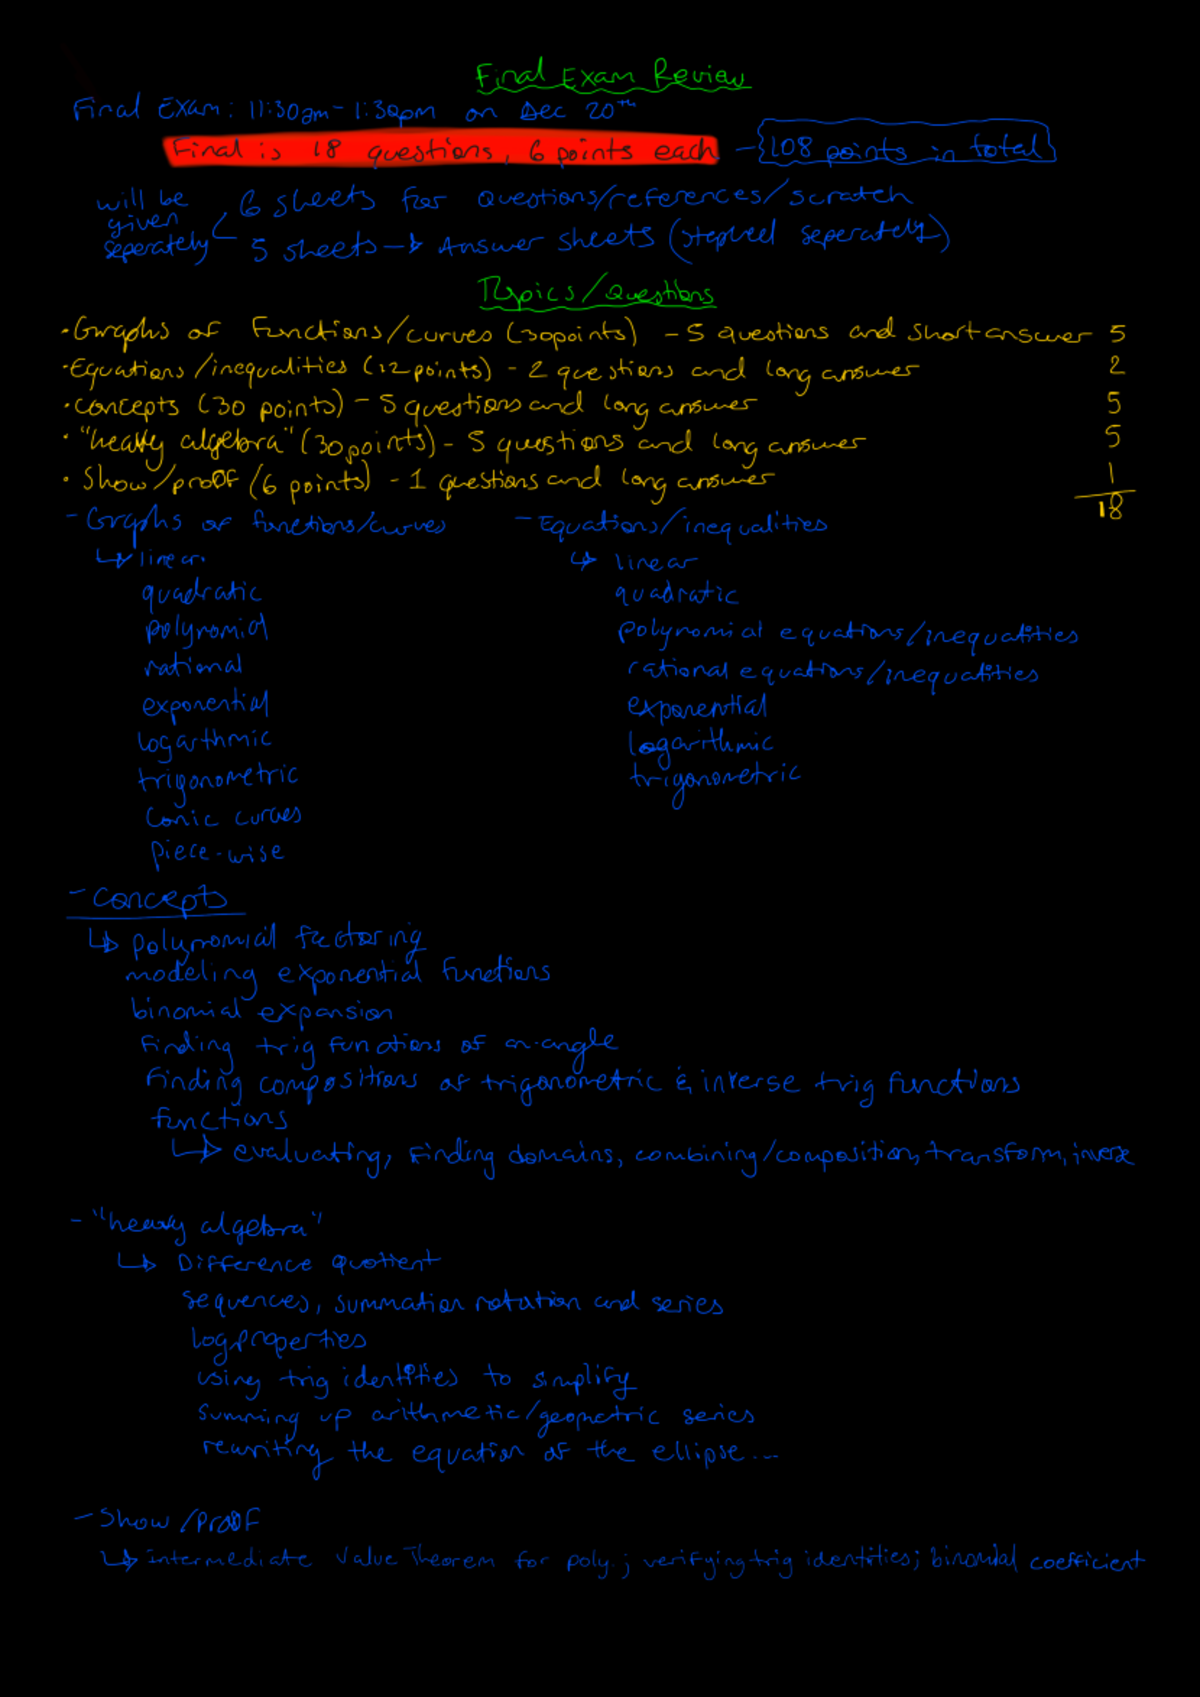 Final Exam Review
Final Exam: 11:30am - 1:30pm on Dec 20th
Final is 18 questions, 6 points each - 108 points in total
will be given seperately
6 sheets for questions/references/scratch
5 sheets → Answer sheets (stapled seperately)
Topics/Questions
• Graphs of Functions/curves (30points) - 5 questions and short answer 5
• Equations/inequalities (12 points) - 2 questions and long answer 2
• concepts (30 points) - 5 questions and long answer 5
• "heavy algebra" (30points) - 5 questions and long answer 5
• Show/proof (6 points) - 1 questions and long answer 1
18
- Graphs of functions/curves
↳ linear
quadratic
polynomial
rational
exponential
logarthmic
trigonometric
Conic curves
piece-wise
- Equations/inequalities
↳ linear
quadratic
polynomial equations/inequalities
rational equations/inequalities
exponential
logarithmic
trigonometric
- Concepts
↳ polynomial factoring
modeling exponential functions
binomial expansion
Finding trig functions of an angle
Finding compositions of trigonometric & inverse trig functions
functions
↳ evaluating, finding domains, combining/composition, transform, inverse
- "heavy algebra"
↳ Difference quotient
sequences, summation notation and series
log properties
using trig identities to simplify
summing up arithmetic/geometric series
rewriting the equation of the ellipse...
- Show/Proof
↳ intermediate Value Theorem for poly.; verifying trig identities; binomial coefficient